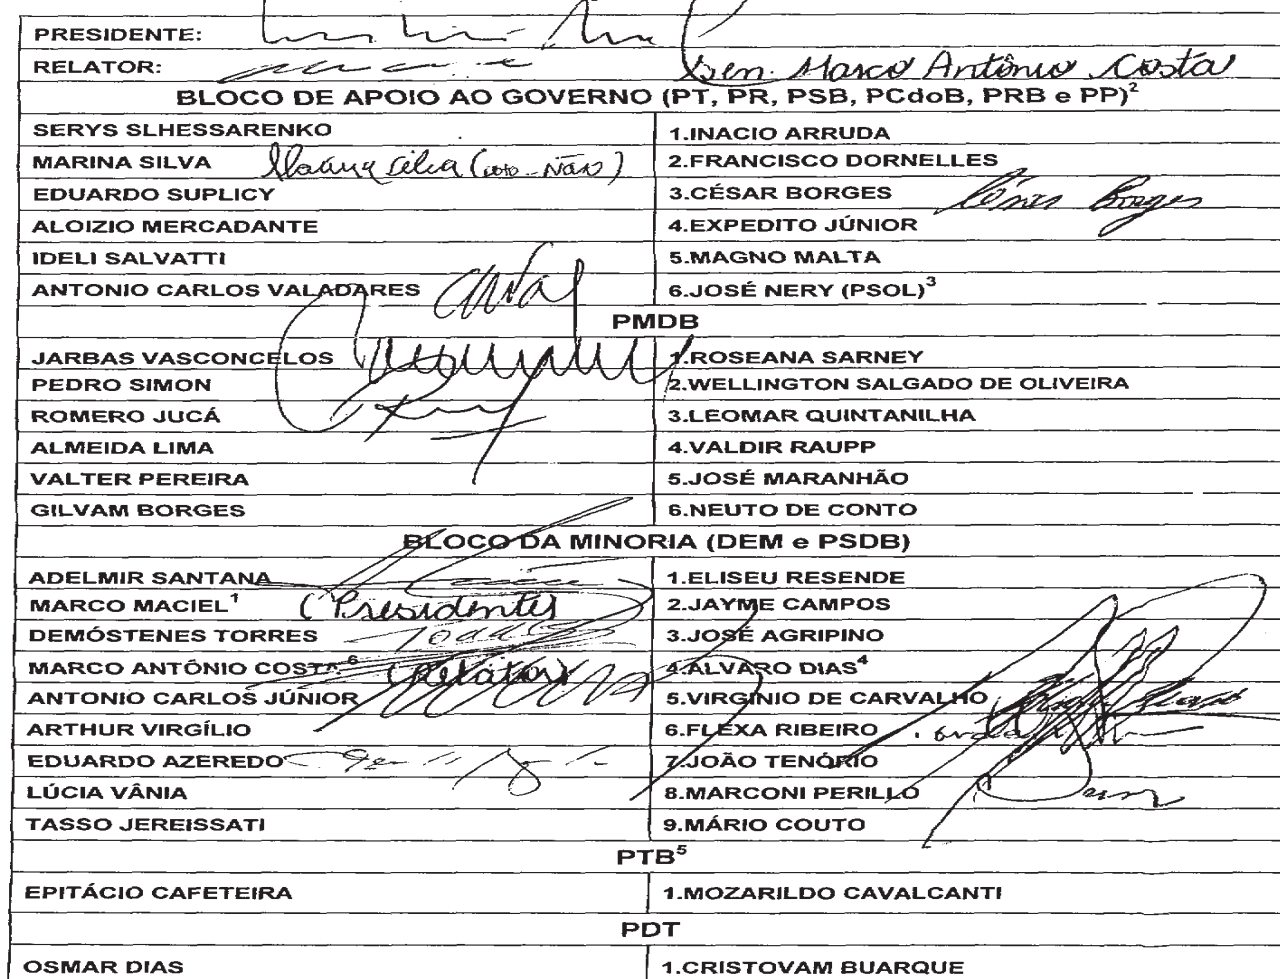 PRESIDENTE:
RELATOR: Sen. Marco Antônio Costa
BLOCO DE APOIO AO GOVERNO (PT, PR, PSB, PCdoB, PRB e PP)²
SERYS SLHESSARENKO 1.INACIO ARRUDA
MARINA SILVA Marina Silva (voto - Não) 2.FRANCISCO DORNELLES
EDUARDO SUPLICY 3.CÉSAR BORGES César Borges
ALOIZIO MERCADANTE 4.EXPEDITO JÚNIOR
IDELI SALVATTI 5.MAGNO MALTA
ANTONIO CARLOS VALADARES 6.JOSÉ NERY (PSOL)³
PMDB
JARBAS VASCONCELOS 1.ROSEANA SARNEY
PEDRO SIMON 2.WELLINGTON SALGADO DE OLIVEIRA
ROMERO JUCÁ 3.LEOMAR QUINTANILHA
ALMEIDA LIMA 4.VALDIR RAUPP
VALTER PEREIRA 5.JOSÉ MARANHÃO
GILVAM BORGES 6.NEUTO DE CONTO
BLOCO DA MINORIA (DEM e PSDB)
ADELMIR SANTANA 1.ELISEU RESENDE
MARCO MACIEL¹ (Presidente) 2.JAYME CAMPOS
DEMÓSTENES TORRES 3.JOSÉ AGRIPINO
MARCO ANTÔNIO COSTA⁶ (Relator) 4.ALVARO DIAS⁴
ANTONIO CARLOS JÚNIOR 5.VIRGINIO DE CARVALHO
ARTHUR VIRGÍLIO 6.FLEXA RIBEIRO
EDUARDO AZEREDO 7.JOÃO TENÓRIO
LÚCIA VÂNIA 8.MARCONI PERILLO
TASSO JEREISSATI 9.MÁRIO COUTO
PTB⁵
EPITÁCIO CAFETEIRA 1.MOZARILDO CAVALCANTI
PDT
OSMAR DIAS 1.CRISTOVAM BUARQUE